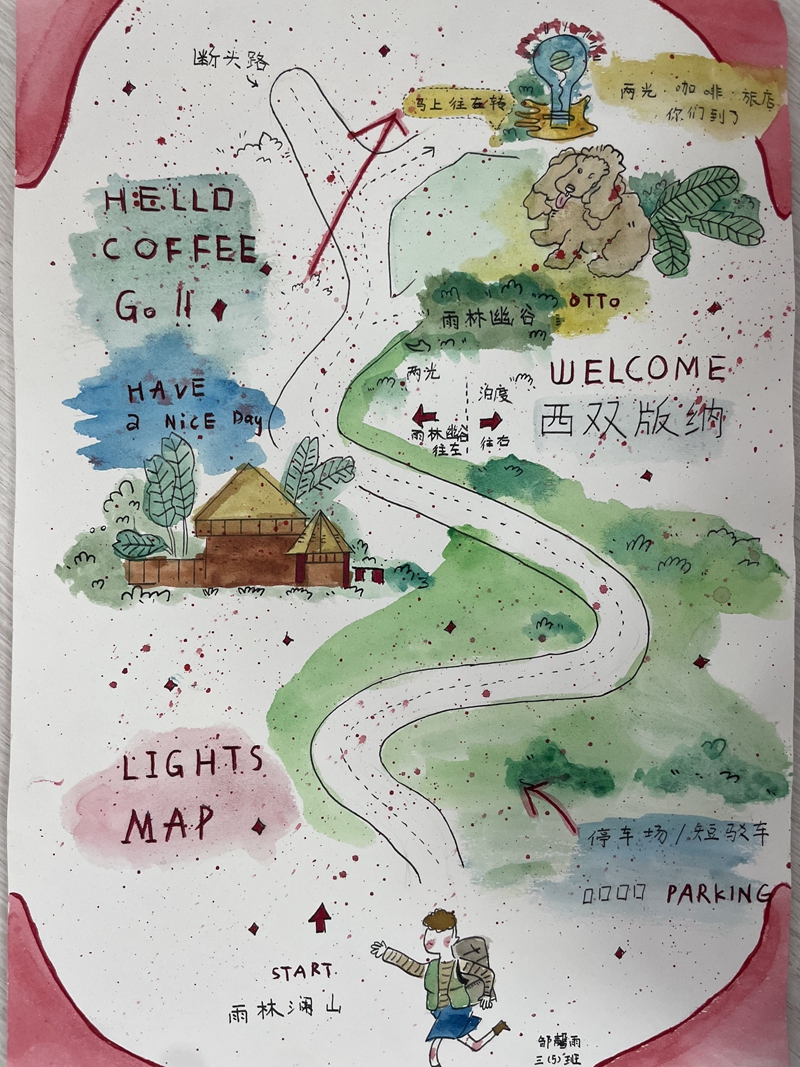 断头路
马上往右转
两光·咖啡·旅店
你们到了
HELLO
COFFEE
Go !!
OTTO
雨林幽谷
HAVE
a NiCE Day
两光
泊度
雨林幽谷
往左
往右
WELCOME
西双版纳
LIGHTS
MAP
停车场/短驳车
PARKING
START
雨林澜山
邹馨雨
三(5)班